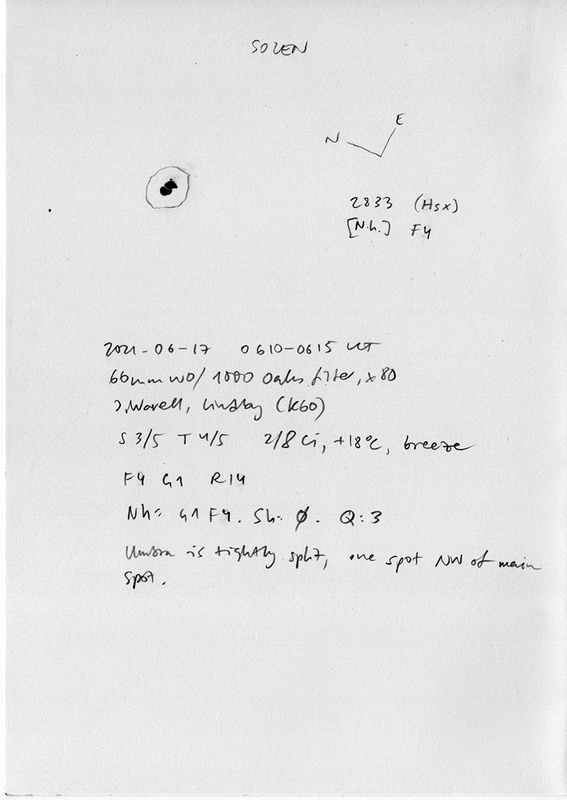 SOLEN
N E
2833 (Hsx)
[N.h.] F4
2021-06-17 0610-0615 UT
66mm WO/ 1000 Oaks filter, x80
J. Warell, Lindby (K60)
S 3/5 T 4/5 2/8 Ci, +18°C, breeze
F4 G1 R14
Nh: G1 F4. Sh: ∅. Q:3
Umbra is tightly split, one spot NW of main
spot.